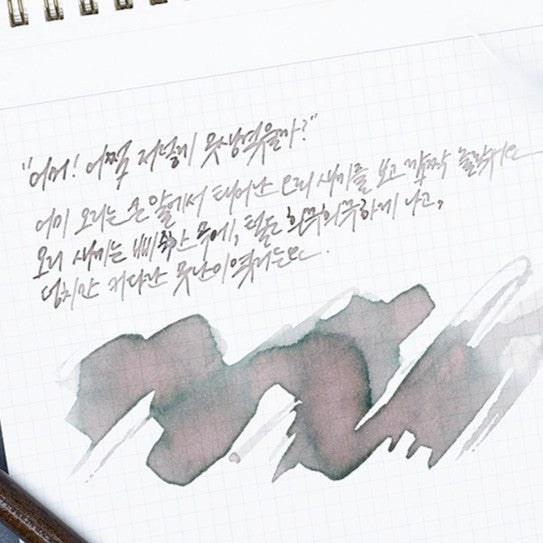 "어머! 어쩜 저렇게 못생겼을까?"
어미 오리는 큰 알에서 태어난 오리 새끼를 보고 깜짝 놀랐어요
오리 새끼는 삐쭉한 부리에, 털도 희끄희끄하게 나고,
덩치만 커다란 못난이였거든요.